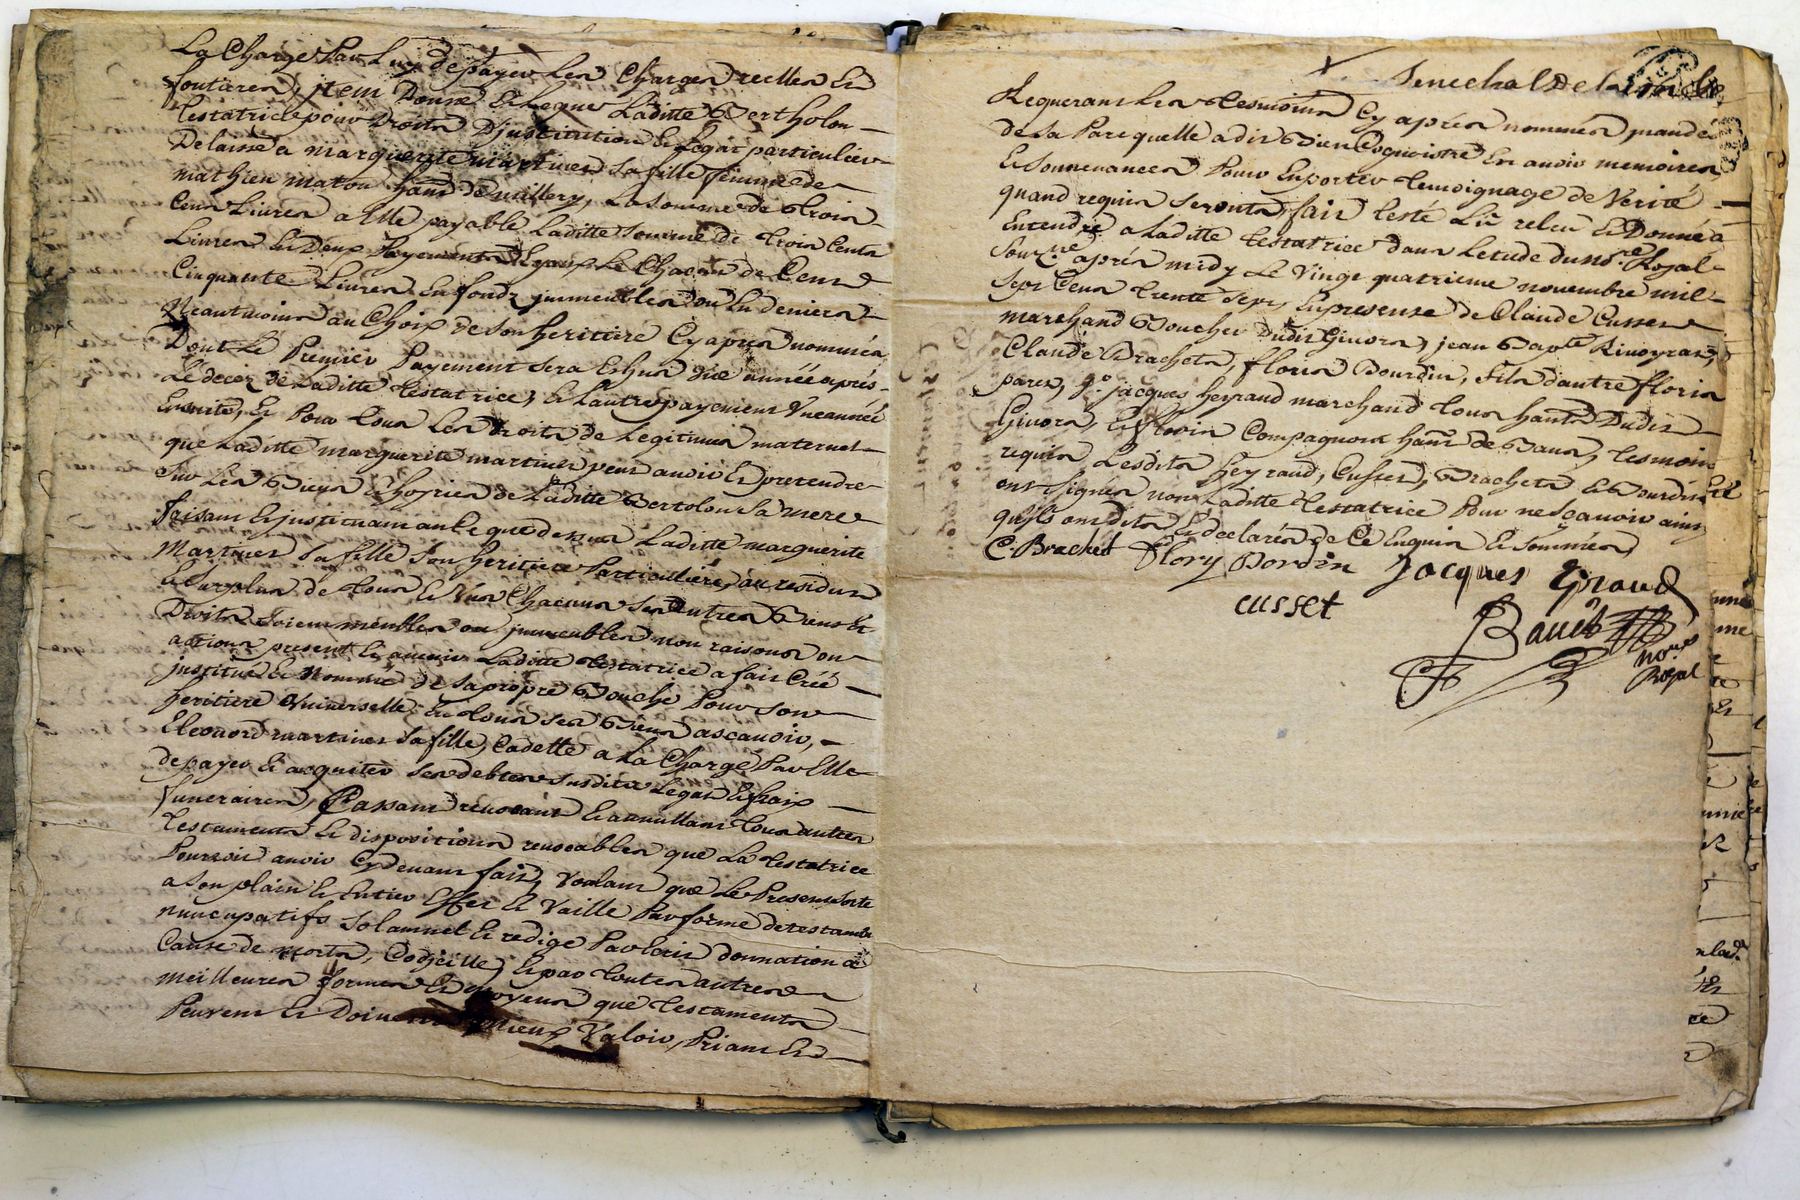 La Charge Par Luy de payer Les Charges reelles Et
foncieres, jtem Donne et Legue Laditte Bertholon
Testatrice pour Droits D'justitution et Legat particulier
Delaisse a marguerite martinet sa fille femme de
mathieu maton habt. de millery, La somme de trois
Cens Livres a Elle payable Laditte somme de trois Cents
Livres En Deux Payements Egaux de Chacun de Cent
Cinquante Livres En fondz jmmeubles ou En deniers
Neantmoins au Choix de son heritiere Cy apres nommée,
Dont Le Premier Payement sera Echus une année aprés
Le decez de Laditte Testatrice, et L'autre payement Une année
Ensuite, Et Pour tous Les droits de Legitimes maternel
que Laditte marguerite martinet peut avoir Et pretendre
sur Les Biens et hoyries de Laditte Bertolon Sa mere
faisant et justituant En ce que dessus Laditte marguerite
Martinet sa fille son heritiere Particuliere, au residus
et surplus de tous Et Uns Chacuns ses autres Biens Et
Droits soient meubles ou jmmeubles nom raisons ou
actions present et avenir Laditte Testatrice a fait Créé
justitue Et Nommé de sa propre Bouche Pour son
heritiere Universelle En tous ses Biens ascavoir,
Eleonord martinet sa fille, Cadette a La Charge Par Elle
de payer Et acquiter ses debtes susdits Legat et fraix
funeraires, Cassant revocant Et annullant tous autres
Testaments et dispositions revocables que La testatrice
Pourroit avoir Cy devant fait, Voulant que Le Present sorte
a son plain et Entier Effet et Vaille Par forme de testamt
nuncupatifs solamnel et redigé Par Ecris donnation a
Cause de morts, Codjcille, Et par toutes autres
meilleures formes Et moyens que testaments
Peuvent Et Doivent mieux Valoir, Priant Et
Senechal De
Requerant Les tesmoins Cy aprés nommés, mandés
de sa Part quelle a dit Bien Cognoistre En avoir memoires
Et souvenances Pour En porter temoignage de Verité
quand requis seront, fait testé Lû releu Et Donné a
Entendre a Laditte testatrice dans Letude du no.re Royal
sous.né aprés midy Le Vingt quatrieme novembre mil
sept Cens trente sept, En presence de Claude Cusset
marchand Boucher dudit Givors, jean Bapte Rivoyras,
Claude Brachets, floris Bourdin, fils d'autre floris
jacques heyraud marchand tous habts Dudit
Givors, et floris Compagnont habt de Bans, tesmoins
requis, Lesdits heyraud, Cusset, Brachets et Bourdin
ont signés non Laditte testatrice Pour ne sçavoir ainsy
quils ont dits Et declarés de Ce Enquis et sommés,
C. Brachet Flory Bordin Jacques Eraud
cusset
not.
Royal